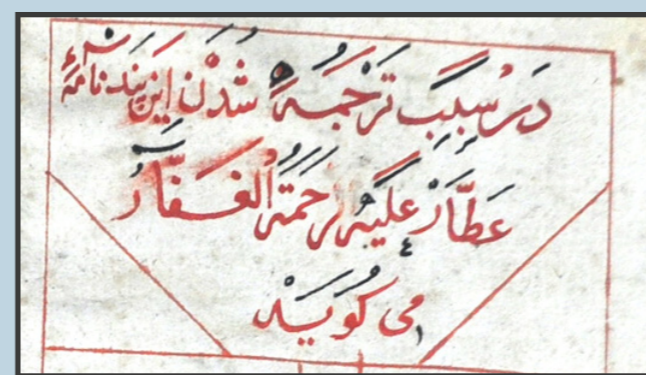 دَرْ سَبَبِ تَرْجَمَهٔ شُدَنِ اِینْ پَنْدنَامَهٔ
عَطَّارْ عَلَیْهِ رَحْمَةُ الْغَفَّارُ
مِی کُویَدْ